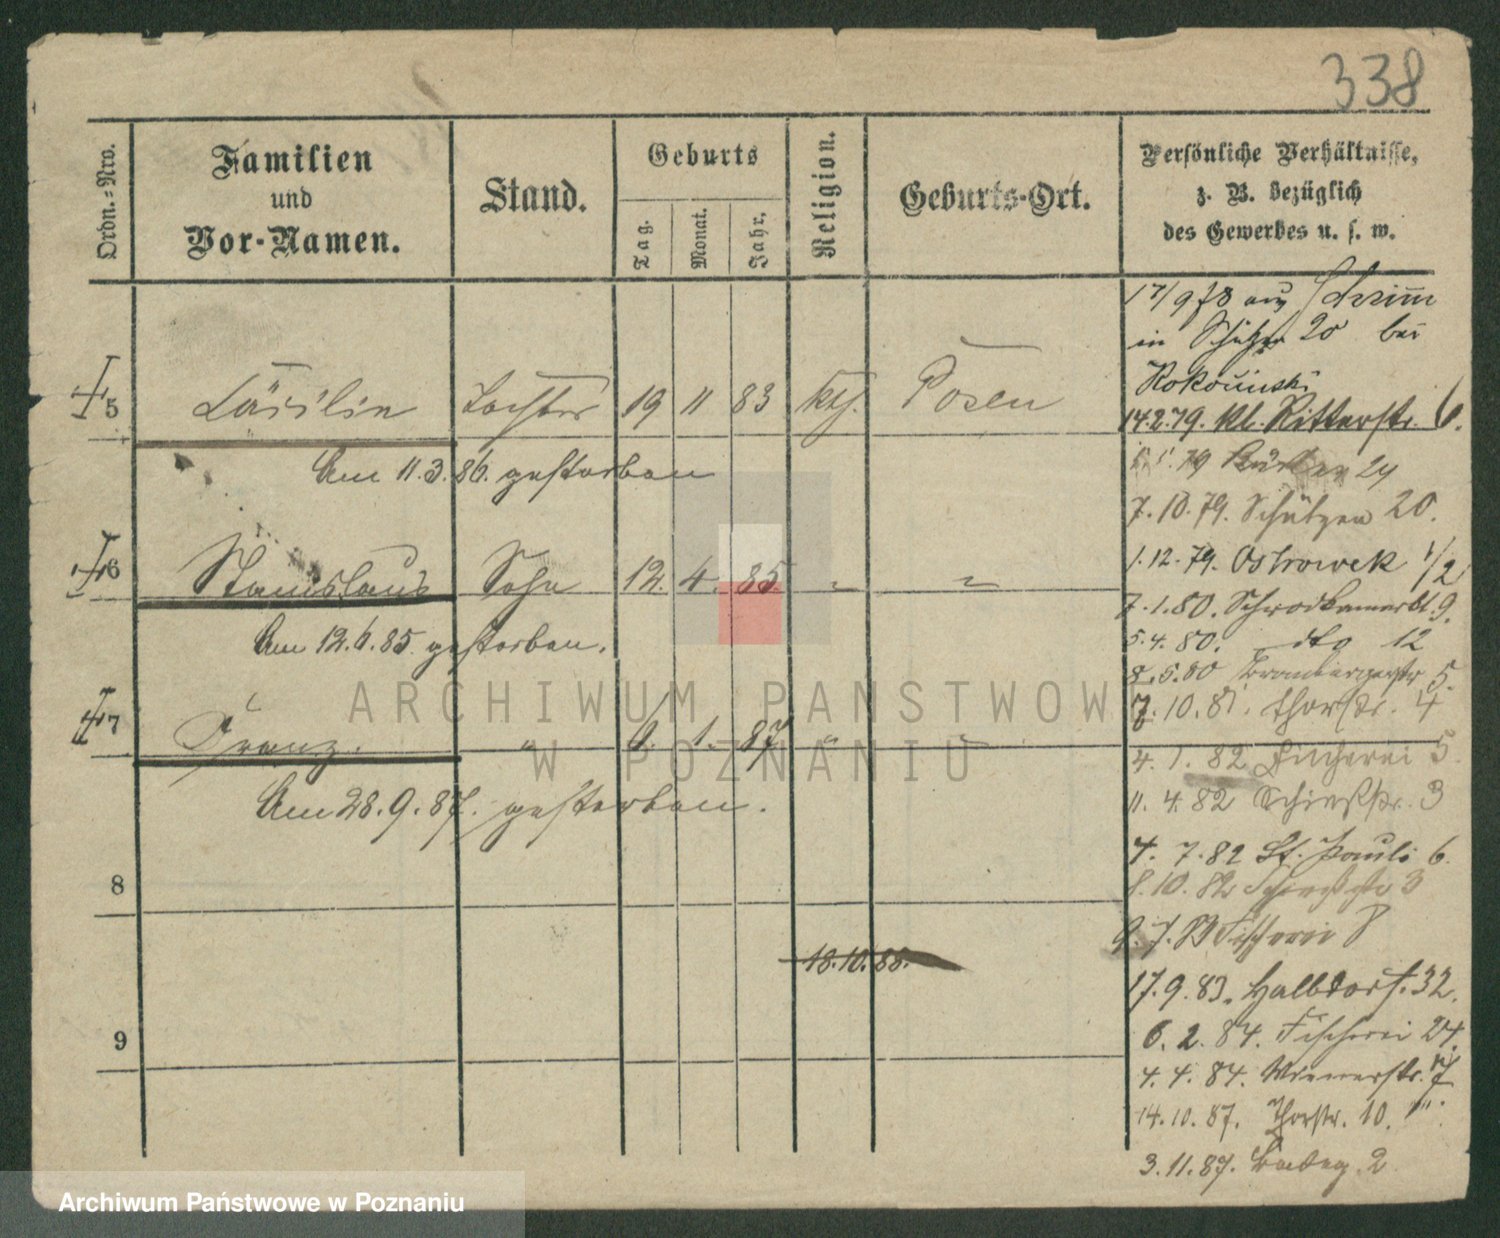 338
Ordn.=Nro.
Familien
und
Vor-Namen.
Stand.
Geburts
Tag.
Monat.
Jahr.
Religion.
Geburts-Ort.
Persönliche Verhältnisse,
z. B. bezüglich
des Gewerbes u. s. w.
5 Cäcilie Tochter 19 11 83 kth. Posen
Am 11.3.86. gestorben
6 Stanislaus Sohn 12. 4. 85. " "
Am 12.6.85. gestorben.
7 Franz. " 6. 1. 87 " "
Am 28.9.87. gestorben.
8
18.10.88.
9
17/9 78 aus Schrimm
in Schützen 20 bei
14.2.79. Kl. Ritterstr. 6.
79 24
7.10.79. Schützen 20.
1.12.79. Ostrowek 1/2
7.1.80. Schrodkamarkt 9.
5.4.80. dto 12
8.5.80 Brombergerstr 5.
7.10.81. Thorstr. 4
4.1.82 Fischerei 5.
11.4.82 Schießstr. 3
4.7.82 St. Pauli 6.
8.10.82 Schießstr 3
9.7. Fischerei 8
17.9.83. Halbdorf. 32.
6.2.84. Fischerei 24.
4.4.84. Wienerstr. 7
14.10.87. Thorstr. 10.
3.11.87. 2
ARCHIWUM PAŃSTWOW
W POZNANIU
Archiwum Państwowe w Poznaniu